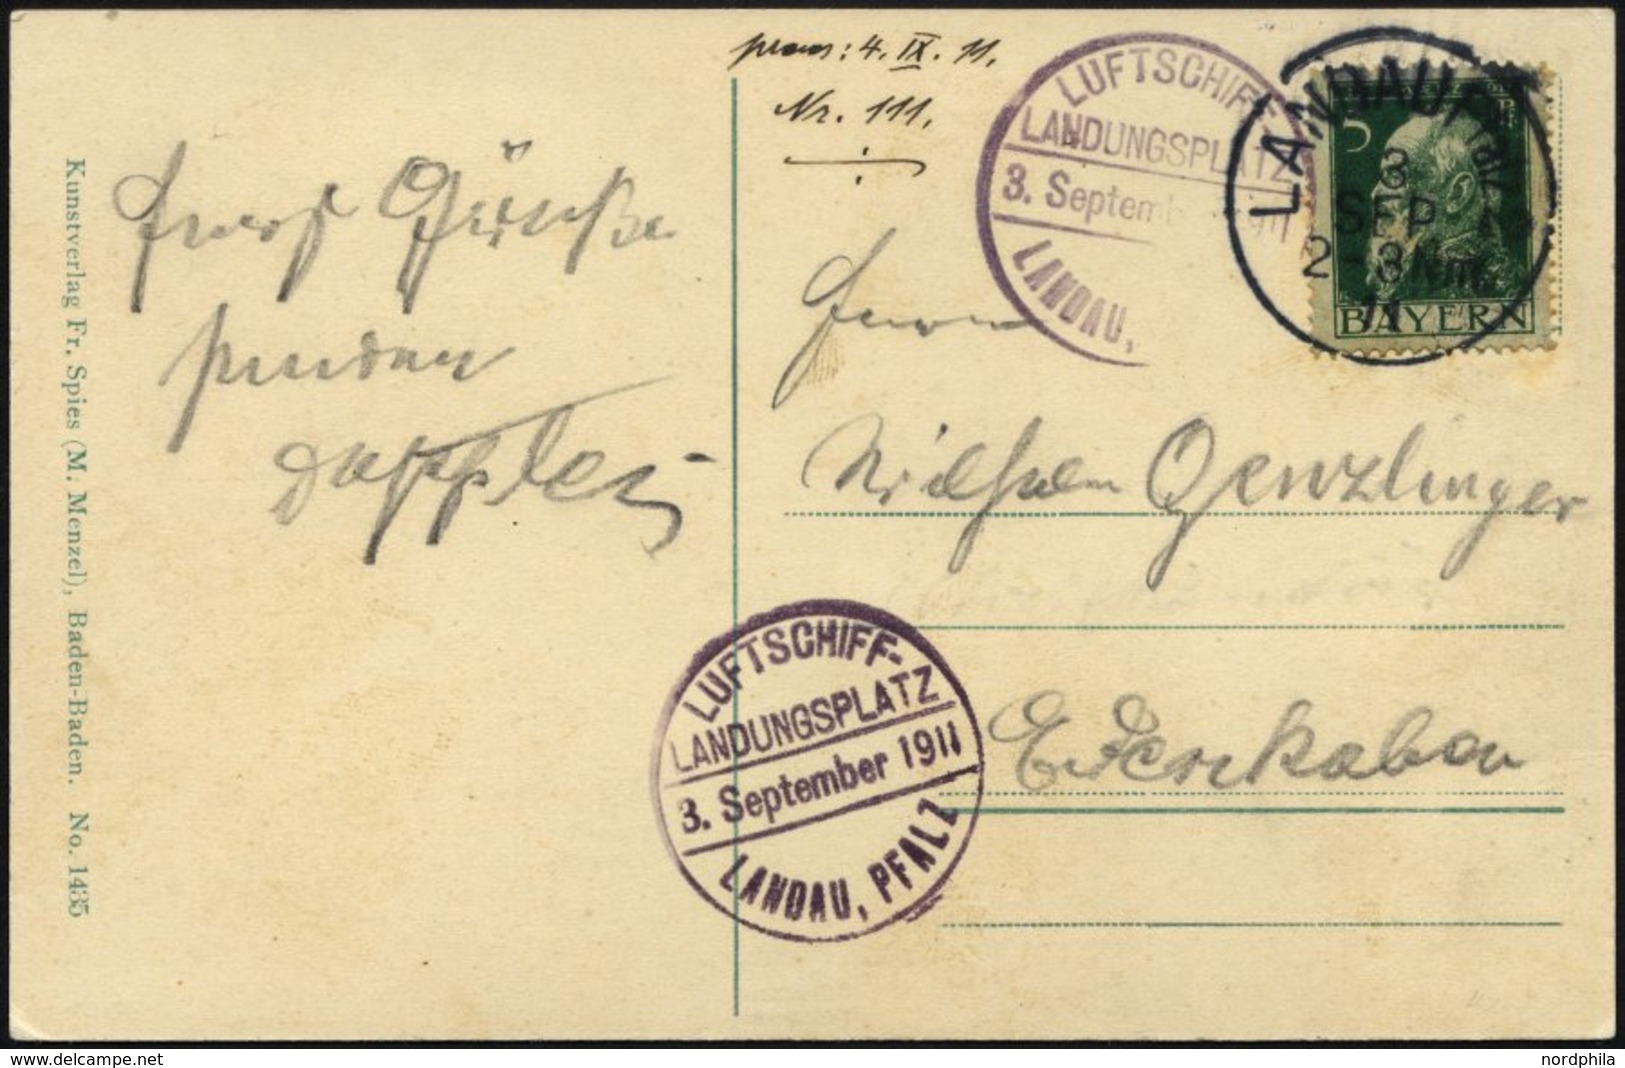 praes: 4. IX. 11.
Nr. 111.
LUFTSCHIFF-
LANDUNGSPLATZ
3. Septemb 1911
LANDAU,
LANDAU Pfalz
3
SEP
2-3 Nm.
11
5
BAYERN
Grüße
senden
Herrn
Wilhelm Genzlinger
Edenkoben
LUFTSCHIFF-
LANDUNGSPLATZ
3. September 1911
LANDAU, PFALZ
Kunstverlag Fr. Spies (M. Menzel), Baden-Baden. No. 1435
www.delcampe.net
nordphila